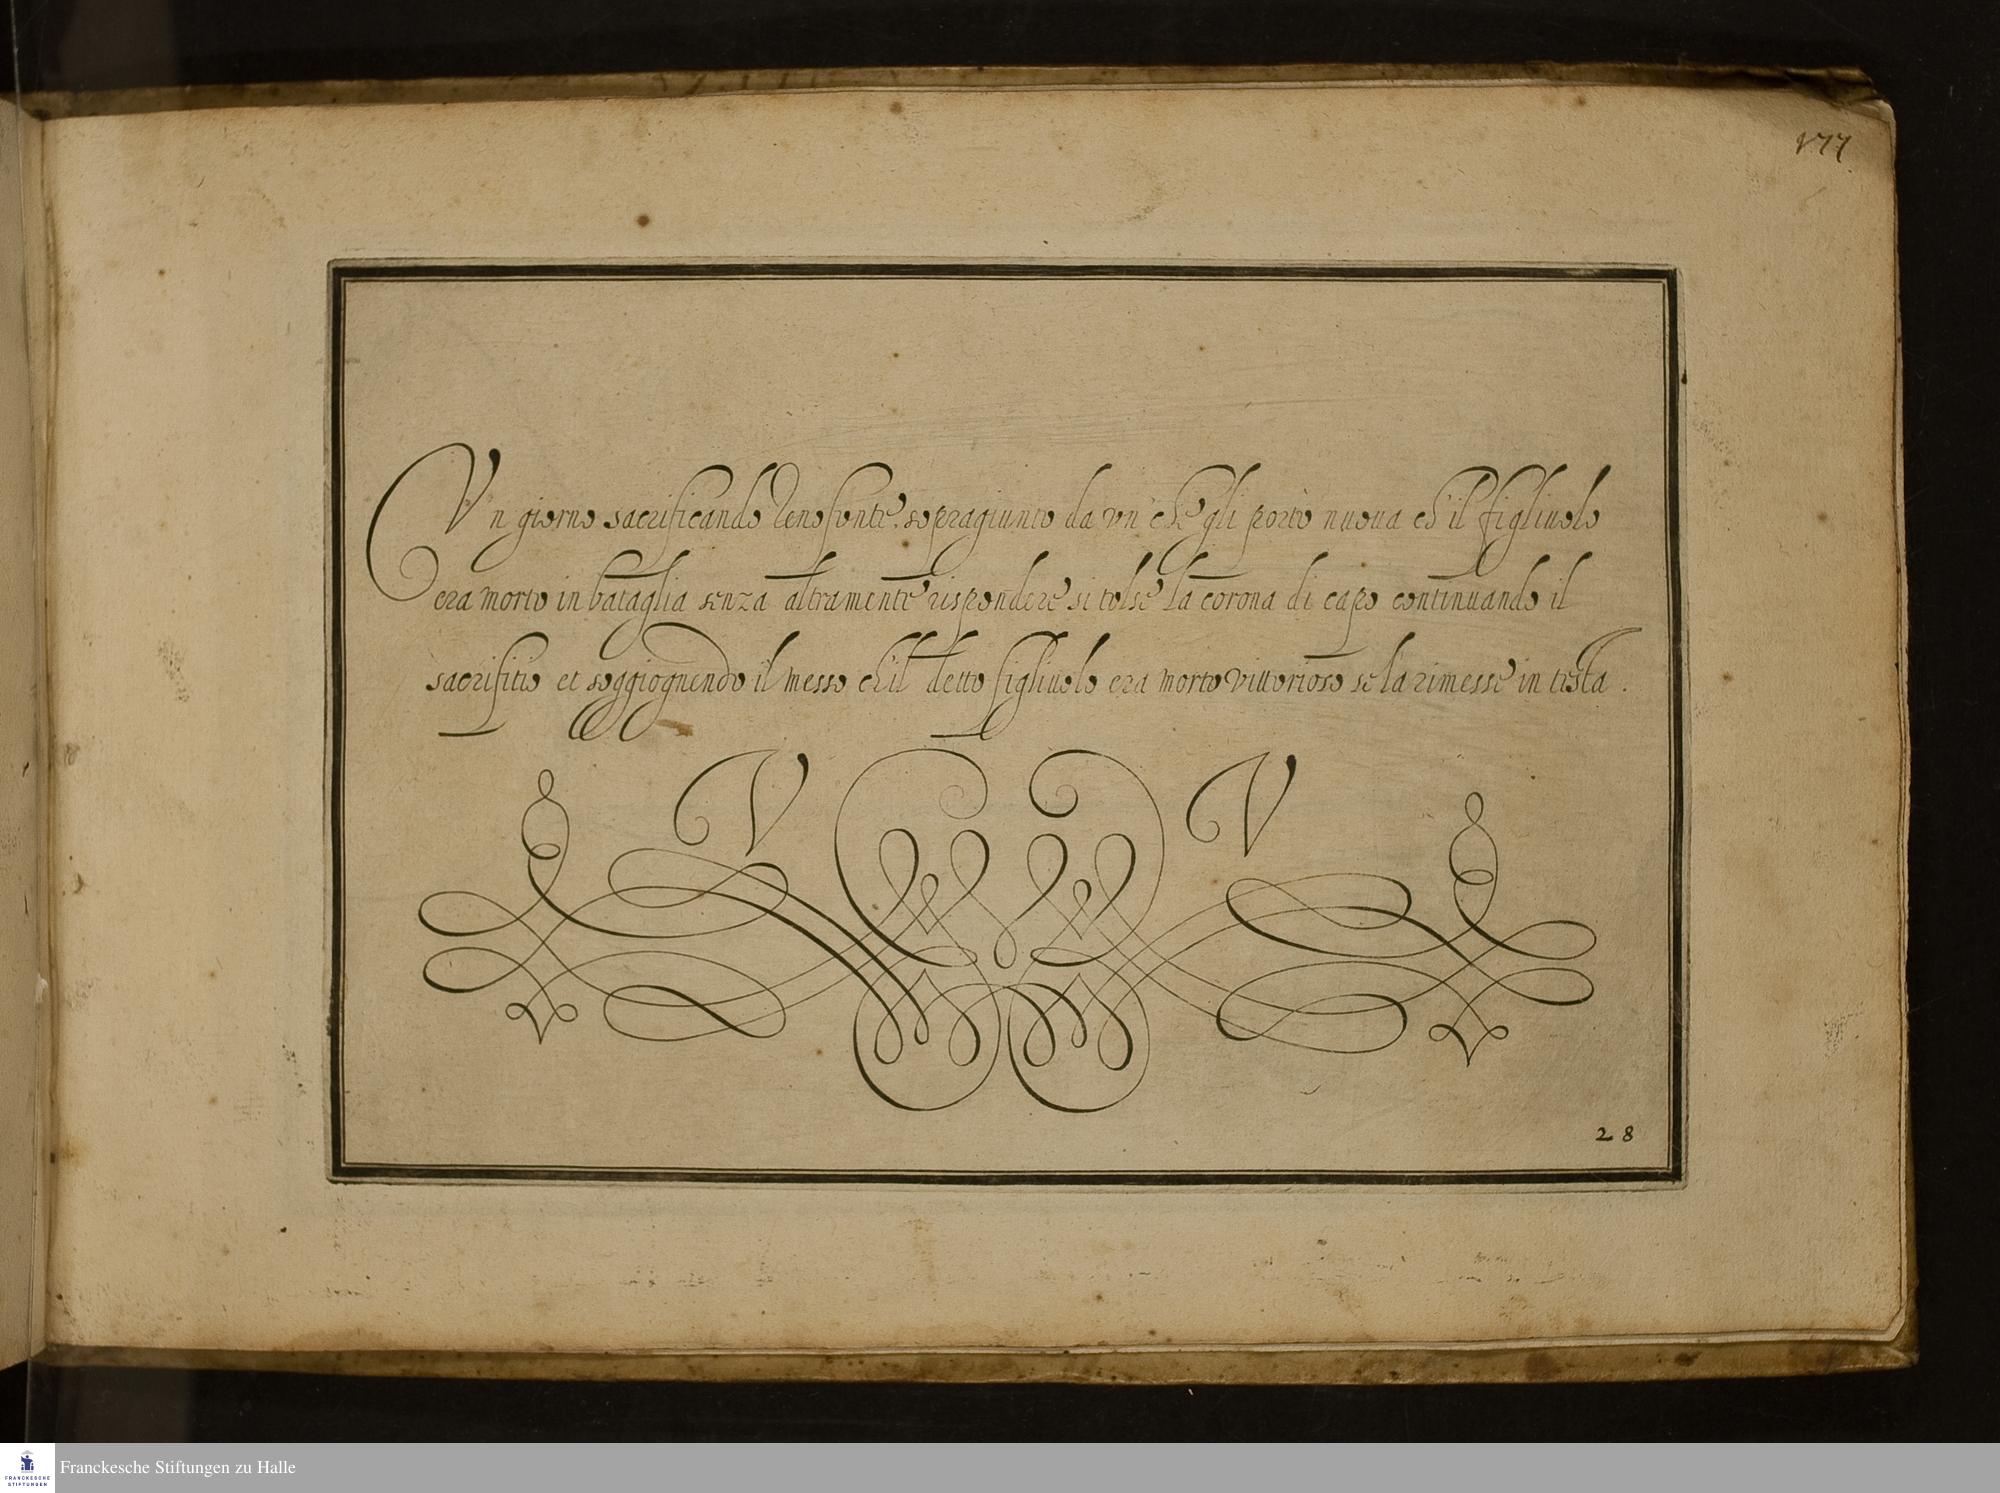 177
Vn giorno sacrificando Zenofonte, sopragiunto da vn che gli portò nuoua ch'il figliuolo
era morto in bataglia senza altramente rispondere si tolse la corona di capo continuando il
sacrifitio et soggiognendo il messo ch'il detto figliuolo era morto vittorioso se la rimesse in testa.
V V
28
FRANCKESCHE
STIFTUNGEN
Franckesche Stiftungen zu Halle